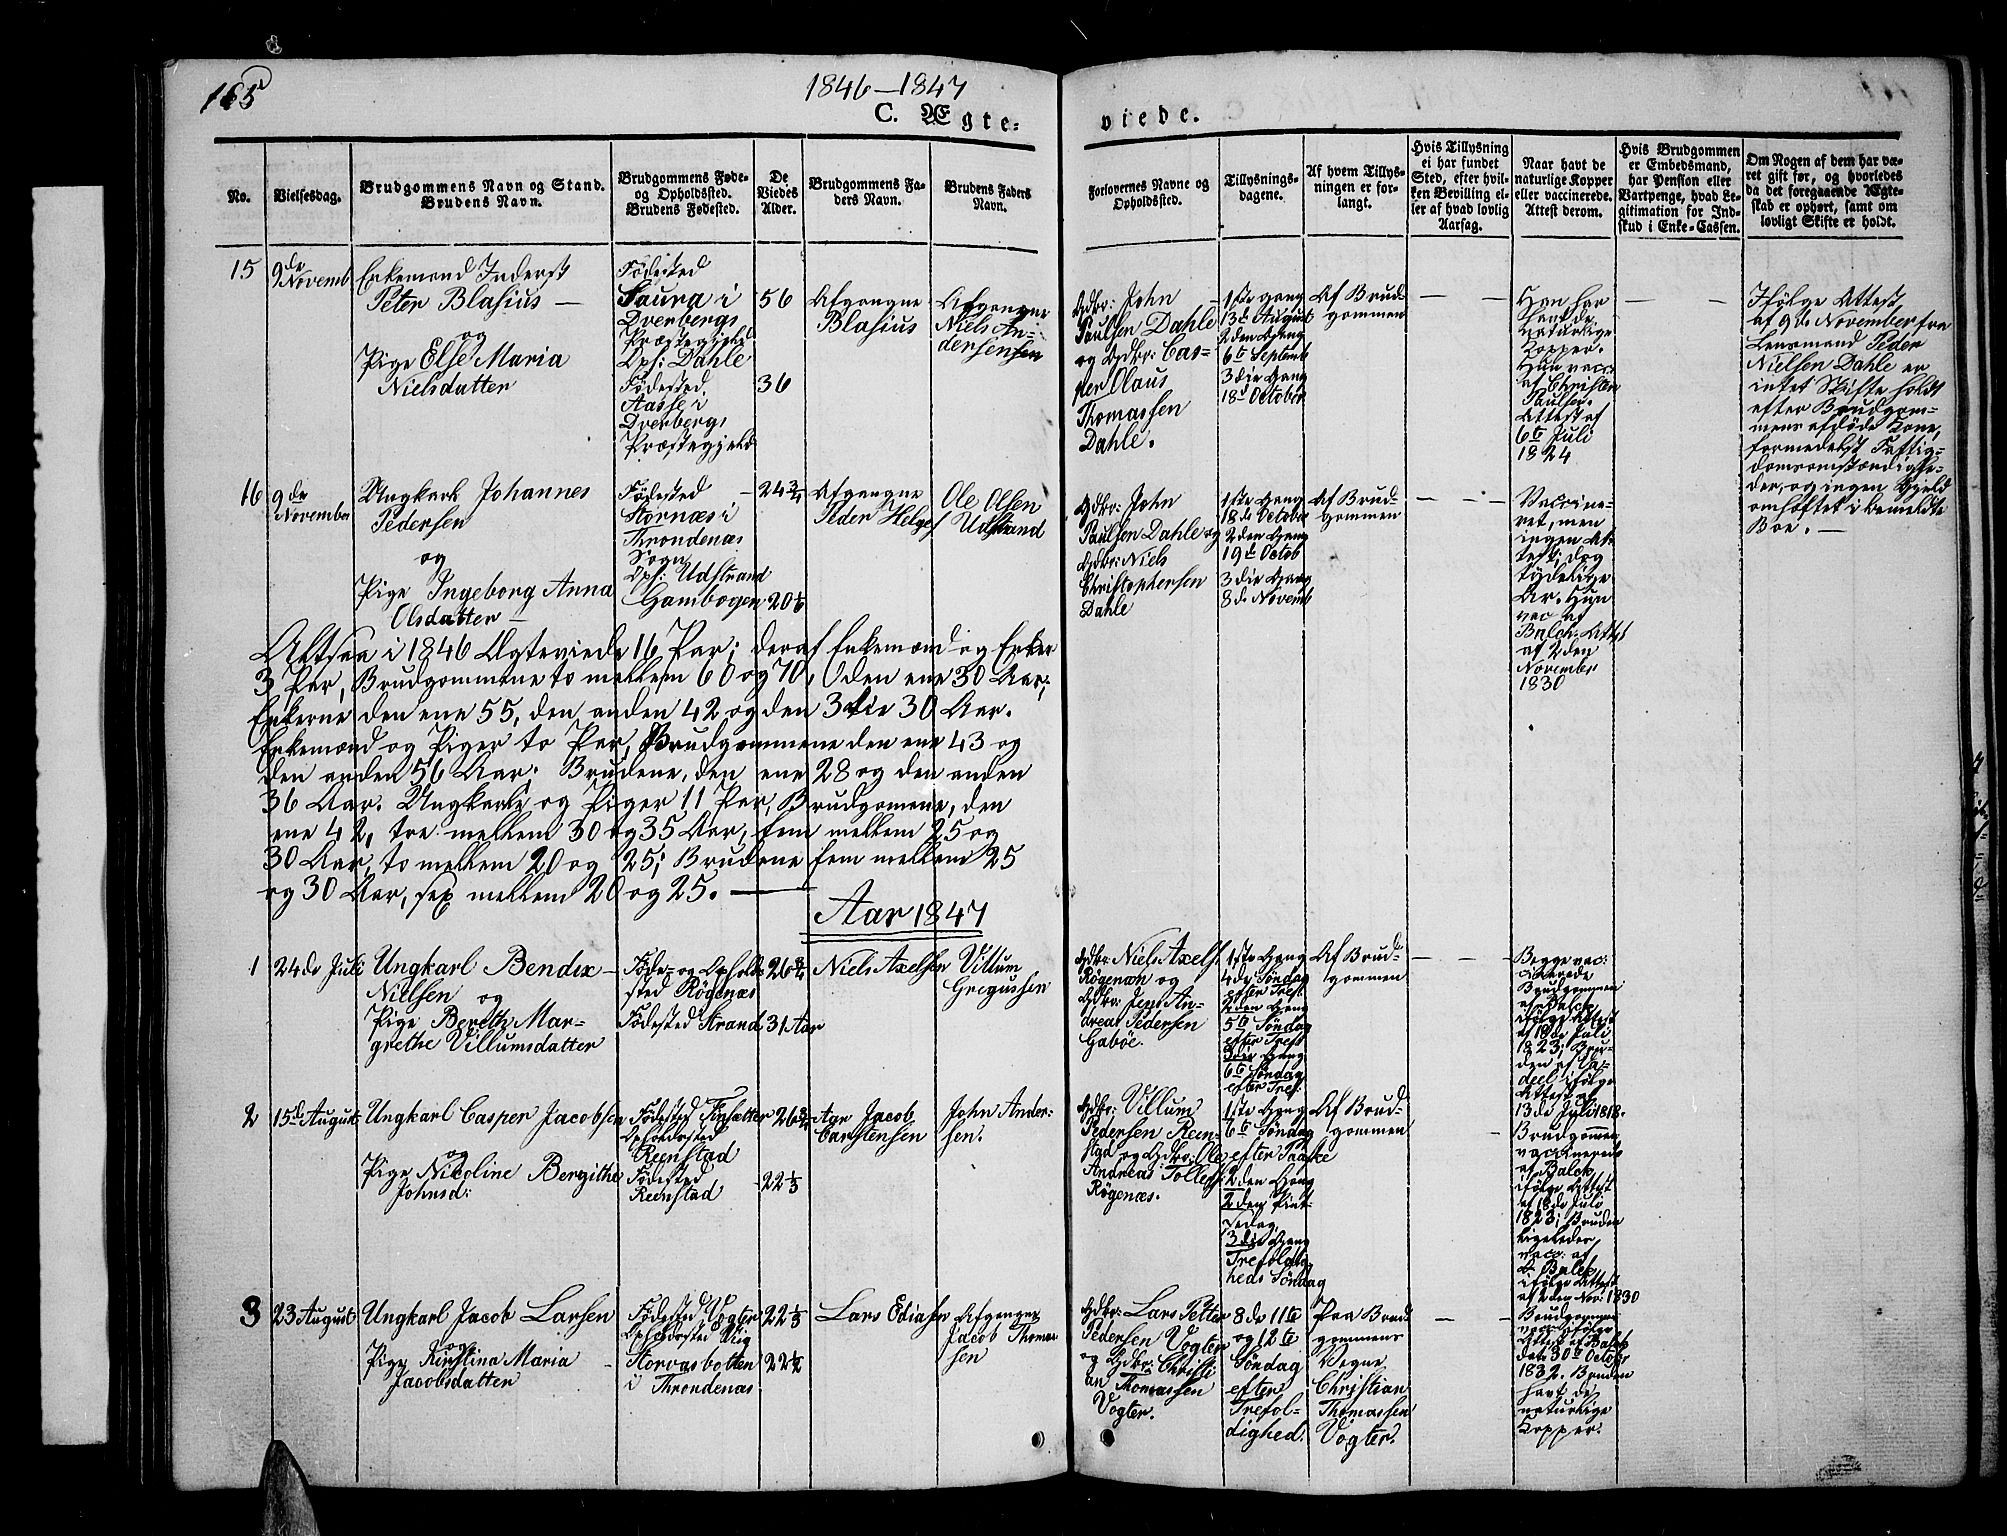 165
1846—1847
C. Ægte=
viede.
No.
Vielsesdag.
Brudgommens Navn og Stand.
Brudens Navn.
Brudgommens Føde-
og Opholdssted.
Brudens Fødested.
De
Viedes
Alder.
Brudgommens Fa-
ders Navn.
Brudens Faders
Navn.
Forlovernes Navne og
Opholdssted.
Tillysnings-
dagene.
Af hvem Tillys-
ningen er for-
langt.
Hvis Tillysning
ei har fundet
Sted, efter hvil-
ken Bevilling el-
ler af hvad lovlig
Aarsag.
Naar havt de
naturlige Kopper
eller vaccinerede.
Attest derom.
Hvis Brudgommen
er Embedsmand,
har Pension eller
Vartpenge, hvad Le-
gitimation for Ind-
skud i Enke-Cassen.
Om Nogen af dem har væ-
ret gift før, og hvorledes
da det foregaaende Ægte-
skab er ophørt, samt om
lovligt Skifte er holdt.
15
9de
Novemb
Enkemand Inderst
Peter Blasius —
og
Pige Else Maria
Nielsdatter
Fødested
Saura i
Dverbergs
Præstegjeld
Ops: Dahle
Fødested
Aasse i
Dverbergs
Præstegjeld
56
36
Afgangne
Blasius
Afgangne
Niels An-
dersensen
Gdbr: John
Paulsen Dahle
og Gdbr: Cas-
per Olaus
Thomassen
Dahle.
1ste Gang
13de August
2den Gang
6te Septemb
3die Gang
18de October
Af Brud-
gommen
Han har
havt de
naturlige
Kopper.
Hun vacc:
af Christen
Paulsen.
Attest af
6te Juli
1824
Ifølge Attest
af 9de November fra
Lensmand Peder
Nielsen Dahle er
intet Skifte holdt
efter Brudgom-
mens afdøde Kone,
formedelst Fattig-
domsomstændighe-
der, og ingen Gjeld
omhæftet i bemeldte
Boe. —
16
9de
November
Ungkarl Johannes
Pedersen
og
Pige Ingeborg Anna
Olsdatter —
Fødested
Stornæs i
Throndenæs
Sogn
Ops: Udstrand
Gambogen
24 3/4
20 1/6
Afgangne
Peder Helges
Ole Olsen
Udstrand
Gdbr: John
Paulsen Dahle og
Gdbr: Niels
Christophersen
Dahle
1ste Gang
18de October
2den Gang
19de Octob
3die Gang
8de Novemb
Af Brud-
gommen
Vaccine-
ret, men
ingen At-
test; dog
tydelige
Ar. Hun
vac af
Balch. Attst
af 2den
November
1830
Altsaa i 1846 Ægteviede 16 Par; deraf Enkemænd og Enker
3 Par, Brudgommene to mellem 60 og 70, Oden ene 30 Aar;
Enkerne den ene 55, den anden 42 og den 3die 30 Aar.
Enkemænd og Piger to Par, Brudgommene den ene 43 og
den anden 56 Aar; Brudene, den ene 28 og den anden
36 Aar. Ungkarle og Piger 11 Par, Brudgomene, den
ene 42, tre mellem 30 og 35 Aar, fem mellem 25 og
30 Aar, to mellem 20 og 25; Brudene fem mellem 25
og 30 Aar, sex mellem 20 og 25. —
Aar 1847
1
24de Juli
Ungkarl Bendix
Nielsen og
Pige Bereth Mar-
grethe Villumsdatter
Føde- og Ophold-
sted Røgenæs
Fødested Strand
26 3/4
31 Aar
Niels Axelsen
Villum
Gregussen
Gdbr: Niels Axels.
Røgenæn og
Gdbr: Jens An-
dreas Pedersen
Gabøe.
1ste Gang
4de Søndag
efter Tref.
2den Gang
5te Søndag
efter Tref
3die Gang
6te Søndag
efter Tref.
Af Brud-
gommen
Begge vac:
cinerede
Brudgommen
af Balch,
ifølge Attest
af 18de Juli
1823; Bru-
den af
ifølge
Attest af
13de Juli 1818.
2
15de August
Ungkarl Casper Jacobsen
og
Pige Nicoline Bergithe
Johnsd:
Fødested Finsætter
Opholdssted
Reenstad
Fødested
Reenstad
26 3/4
22 1/3
Aar Jacob
Carstensen
John Ander-
sen.
Gdbr: Villum
Pedersen Reen-
stad og Gdbr: Ole
Andreas Tollefs.
Røgenæs.
1ste Gang
6te Søndag
efter Paaske
2den Gang
2den Pint-
sedag,
3die Gang
Trefoldig-
heds Søndag
Af Brud-
gommen
Brudgommen
vaccineret
af Balch,
ifølge Attest
af 18de Juli
1823; Bruden
ligeledes
vacc: af
Balch,
ifølge Attest
af 2den Nov: 1830
3
23 August
Ungkarl Jacob Larsen
og
Pige Kirstina Maria
Jacobsdatter
Fødested Vogter
Opholdssted Viig
Storvasbotten
i Throndenæs
22 1/3
22 1/2
Lars Ediasen
Afgangne
Jacob Thomas
sen
Gdbr: Lars Petter
Pedersen Vogter
og Gdbr: Christi
an Thomassen
Vogter.
8de 11te
og 12te
Søndag
efter
Trefol-
dighed.
Paa Brud-
gommens
Vegne
Christian
Thomassen
Vogter.
Brudgommen
vacc ifølge
Attest af Balch
dat: 30te October
1832. Bruden
havt de
naturlige
Kopper.